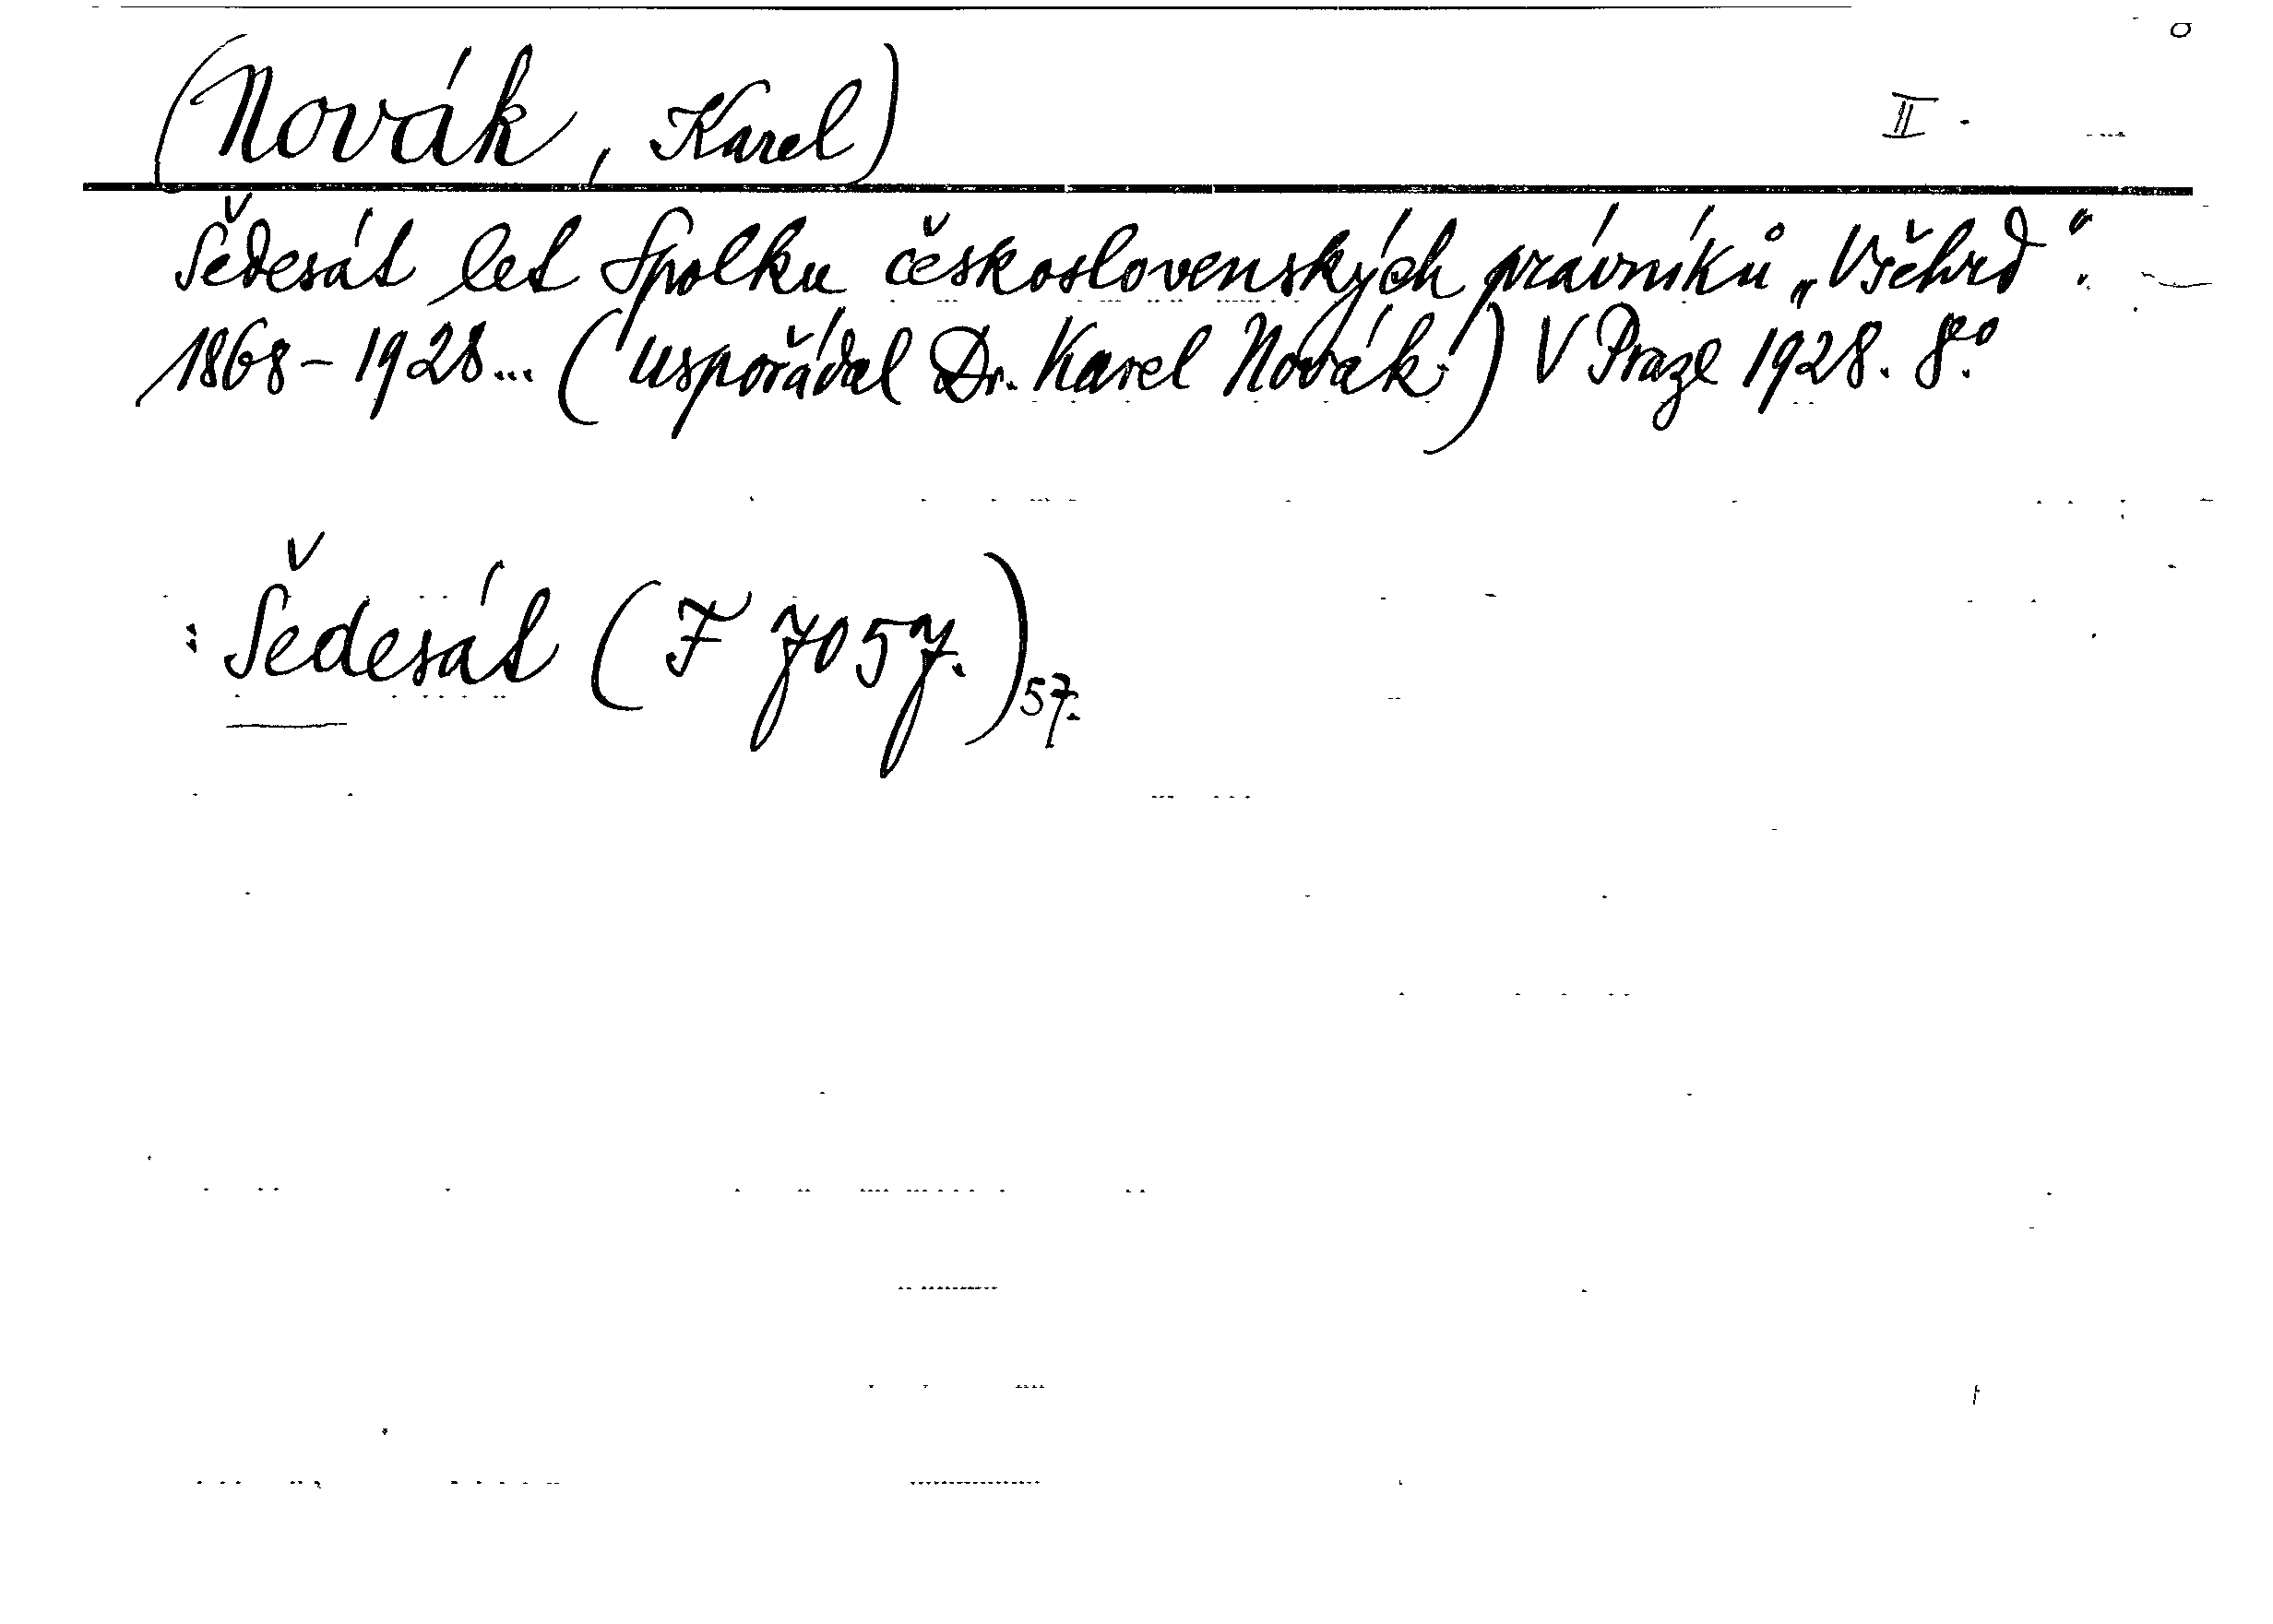 (Novák, Karel) II.
Šedesát let Spolku československých právníků „Všehrd“.
1868–1928... (Uspořádal Dr. Karel Novák.) V Praze 1928. 8.°
: Šedesát (F 7057.) 57.